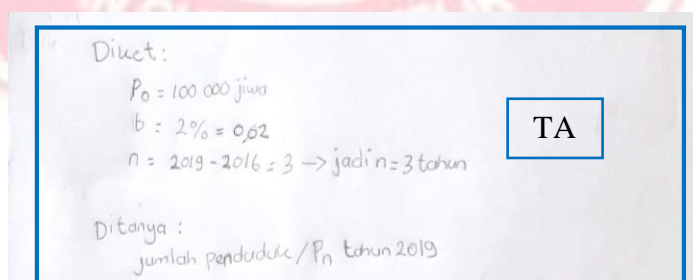 Diket:
P0 = 100 000 jiwa
b = 2% = 0,02
n = 2019 - 2016 = 3 -> jadi n = 3 tahun
TA
Ditanya :
jumlah penduduk / Pn tahun 2019